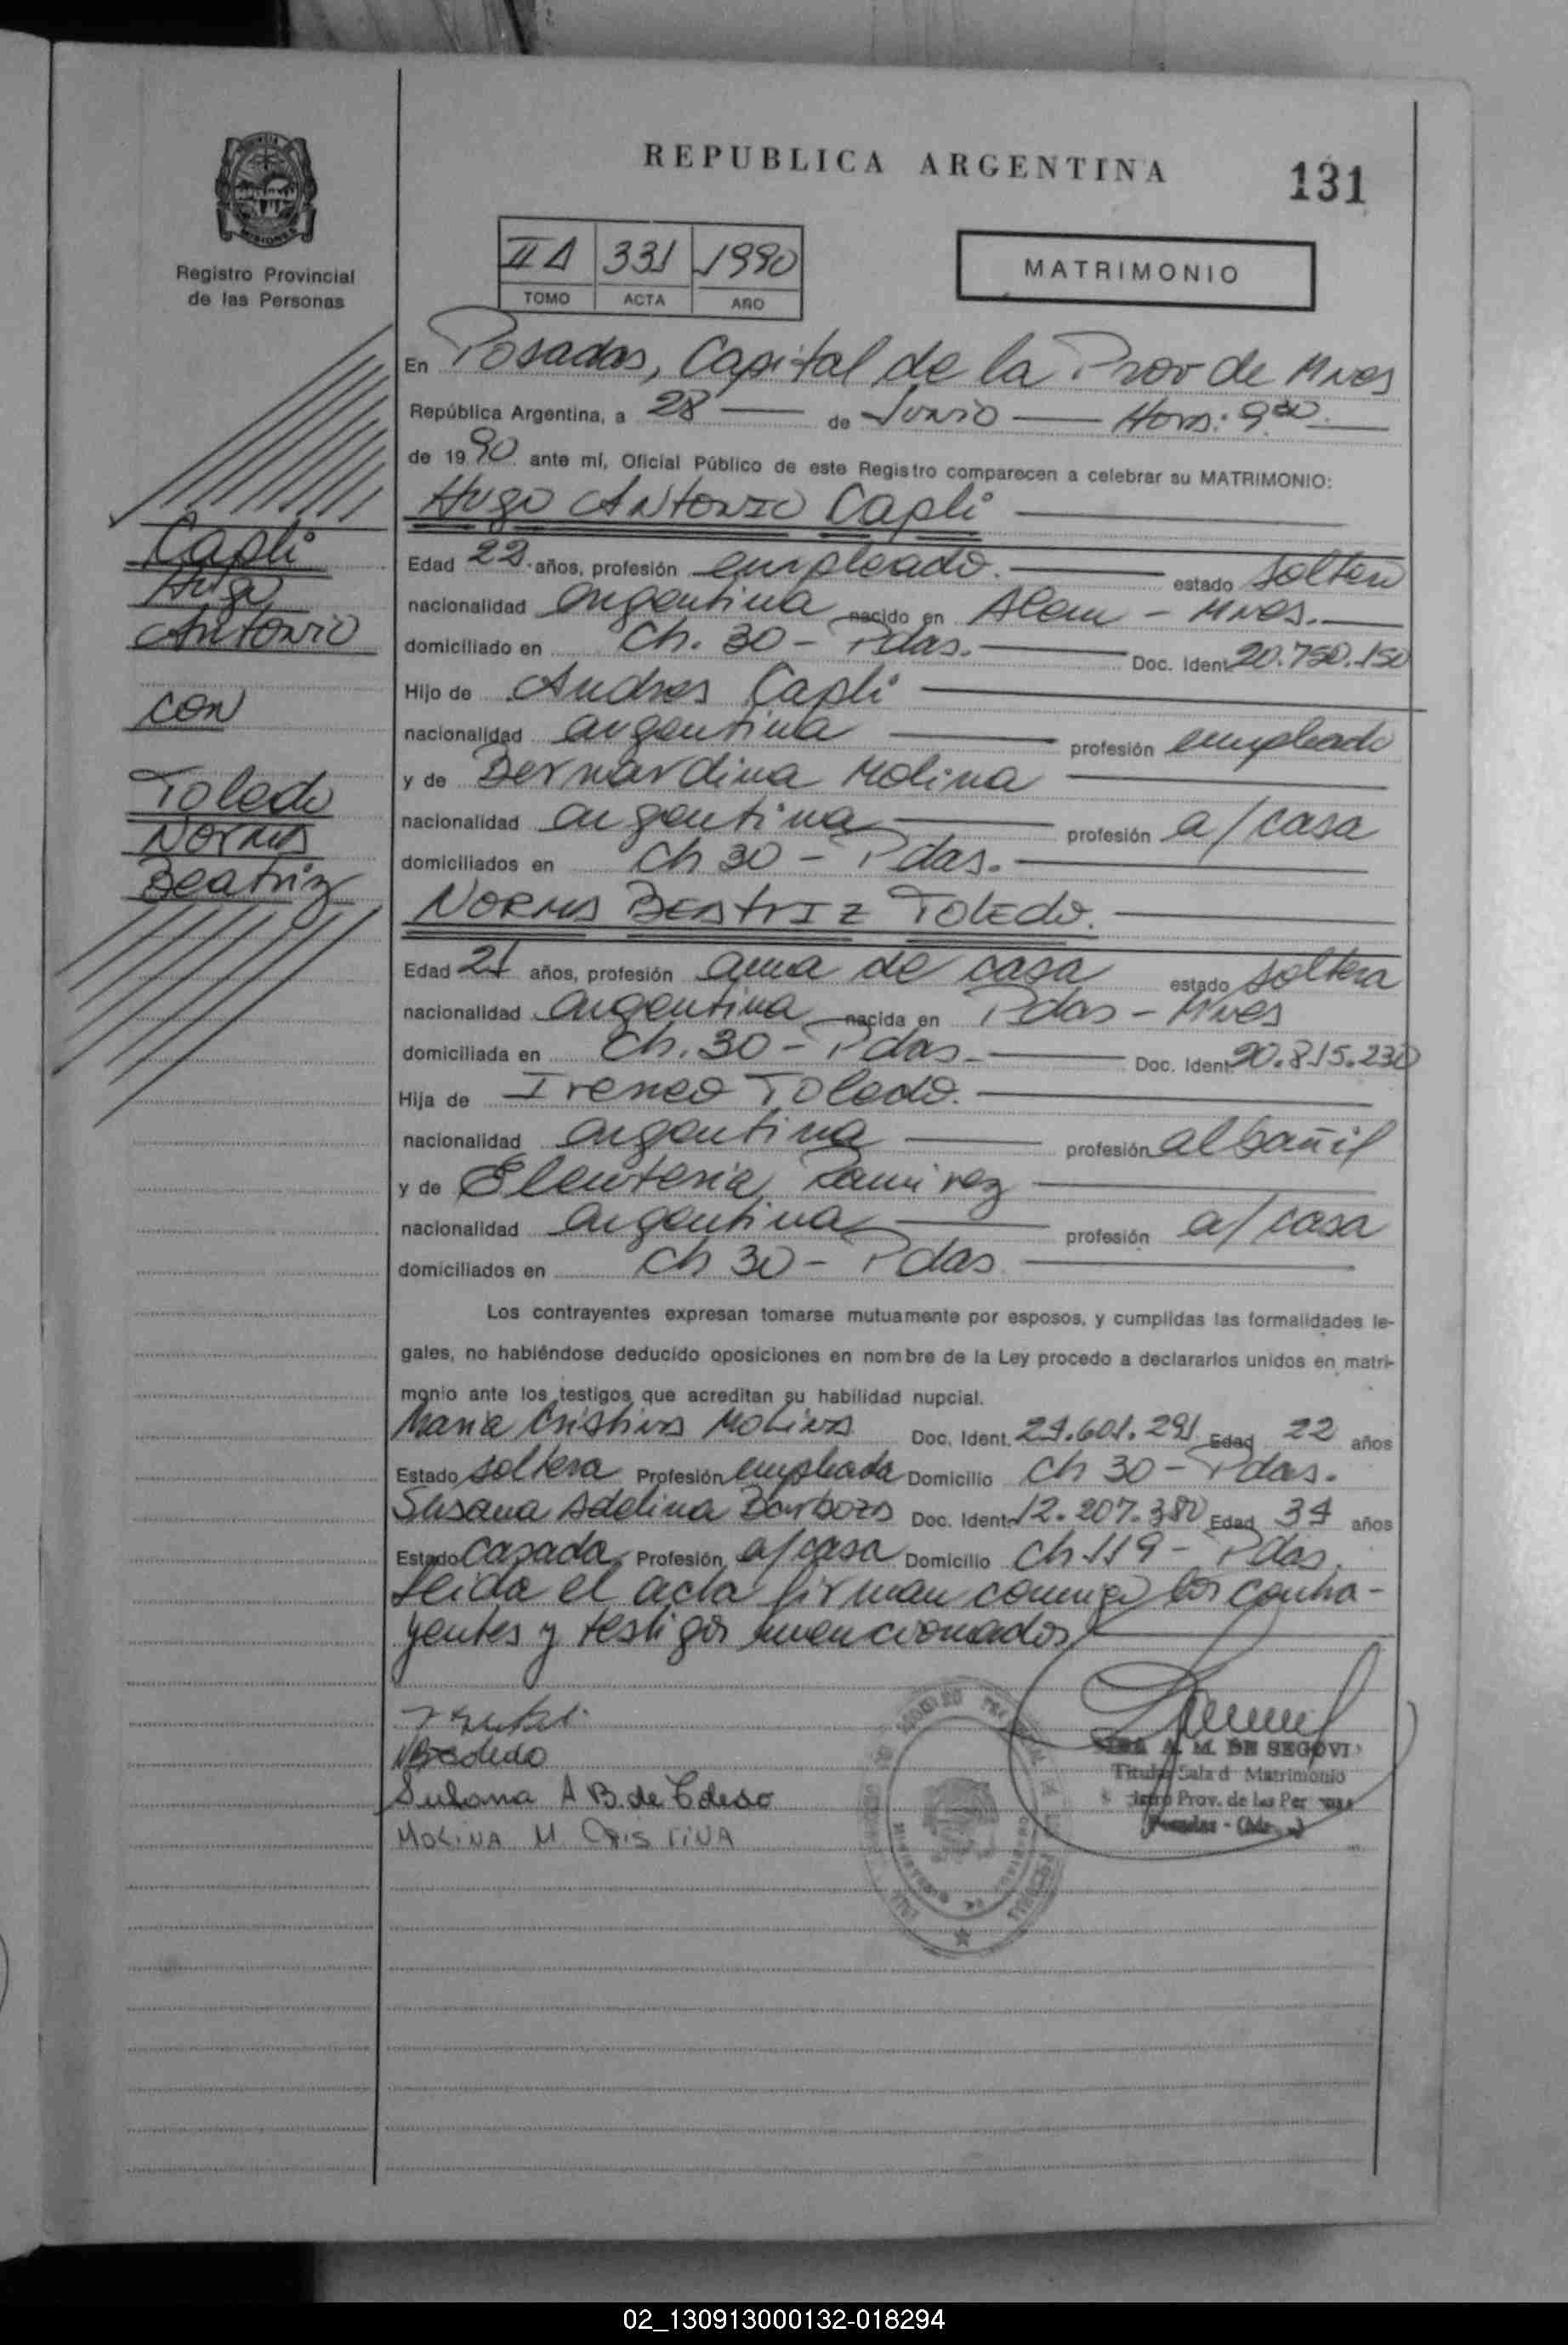 REPUBLICA ARGENTINA
131
Registro Provincial
de las Personas
II A 331 1990
TOMO ACTA AÑO
MATRIMONIO
En Posadas, Capital de la Prov de Mnes
República Argentina, a 28 de Junio Hora: 9.30
de 1990 ante mí, Oficial Público de este Registro comparecen a celebrar su MATRIMONIO:
Hugo Antonio Capli
Edad 22 años, profesión empleado. estado soltero
nacionalidad argentina nacido en Alem - Mnes.
domiciliado en Ch. 30 - Pdas. Doc. Ident. 20.750.150
Hijo de Andres Capli
nacionalidad argentina profesión empleado
y de Bernardina Molina
nacionalidad argentina profesión a/casa
domiciliados en Ch 30 - Pdas.
Norma Beatriz Toledo.
Edad 21 años, profesión ama de casa estado soltera
nacionalidad argentina nacida en Pdas - Mnes
domiciliada en Ch. 30 - Pdas. Doc. Ident. 20.815.230
Hija de Ireneo Toledo.
nacionalidad argentina profesión albañil
y de Eleuteria Ramirez
nacionalidad argentina profesión a/casa
domiciliados en Ch 30 - Pdas
Capli
Hugo
Antonio
con
Toledo
Norma
Beatriz
Los contrayentes expresan tomarse mutuamente por esposos, y cumplidas las formalidades le-
gales, no habiéndose deducido oposiciones en nombre de la Ley procedo a declararlos unidos en matri-
monio ante los testigos que acreditan su habilidad nupcial.
Maria Cristina Molina Doc. Ident. 21.601.291 Edad 22 años
Estado soltera Profesión empleada Domicilio Ch 30 - Pdas.
Susana Adelina Barboza Doc. Ident. 12.207.380 Edad 34 años
Estado Casada Profesión a/casa Domicilio Ch 119 - Pdas.
Leida el acta firman conmigo los contra-
yentes y testigos mencionados
NBToledo
Susana A B. de
MOLINA M CRISTINA
A. M. DE SEGOVI
Titular Sala d Matrimonio
Prov. de las Per
02_130913000132-018294